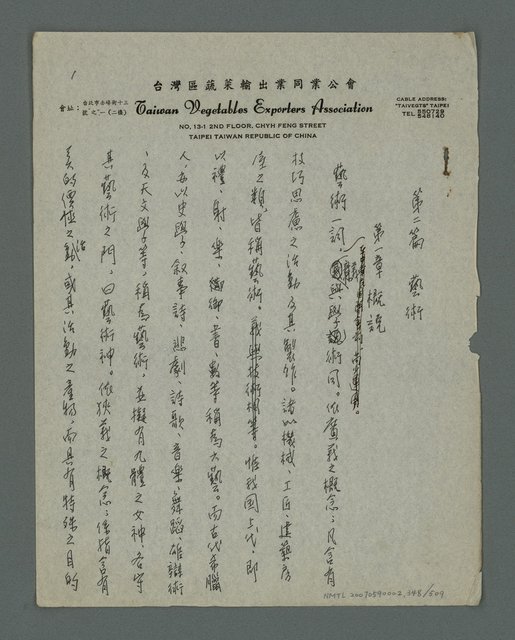 1
台灣區蔬菜輸出業同業公會
會址：台北市赤峰街十三號之一（二樓）
Taiwan Vegetables Exporters Association
CABLE ADDRESS:
"TAIVEGTS" TAIPEI
TEL:
NO, 13-1 2ND FLOOR, CHYH FENG STREET
TAIPEI TAIWAN REPUBLIC OF CHINA
第二篇 藝術
第一章 概說
藝術一詞，與學術同。依廣義之概念：凡含有
技巧思慮之活動及其製作。諸如機械、工匠、建築房
屋之類，皆稱藝術。義與技術相等。惟我國上代，即
以禮、射、樂、御、書、數等稱為六藝。而古代希臘
人，每以史學、敘事詩、悲劇、詩歌、音樂、舞蹈、雄辯術
、及天文學等，稱為藝術，並擬有九體之女神，各守
其藝術之門，曰藝術神。依狹義之概念：係指含有
美的價值之活動，或其活動之產物，而具有特殊之目的
NMTL 20070590002,348/509